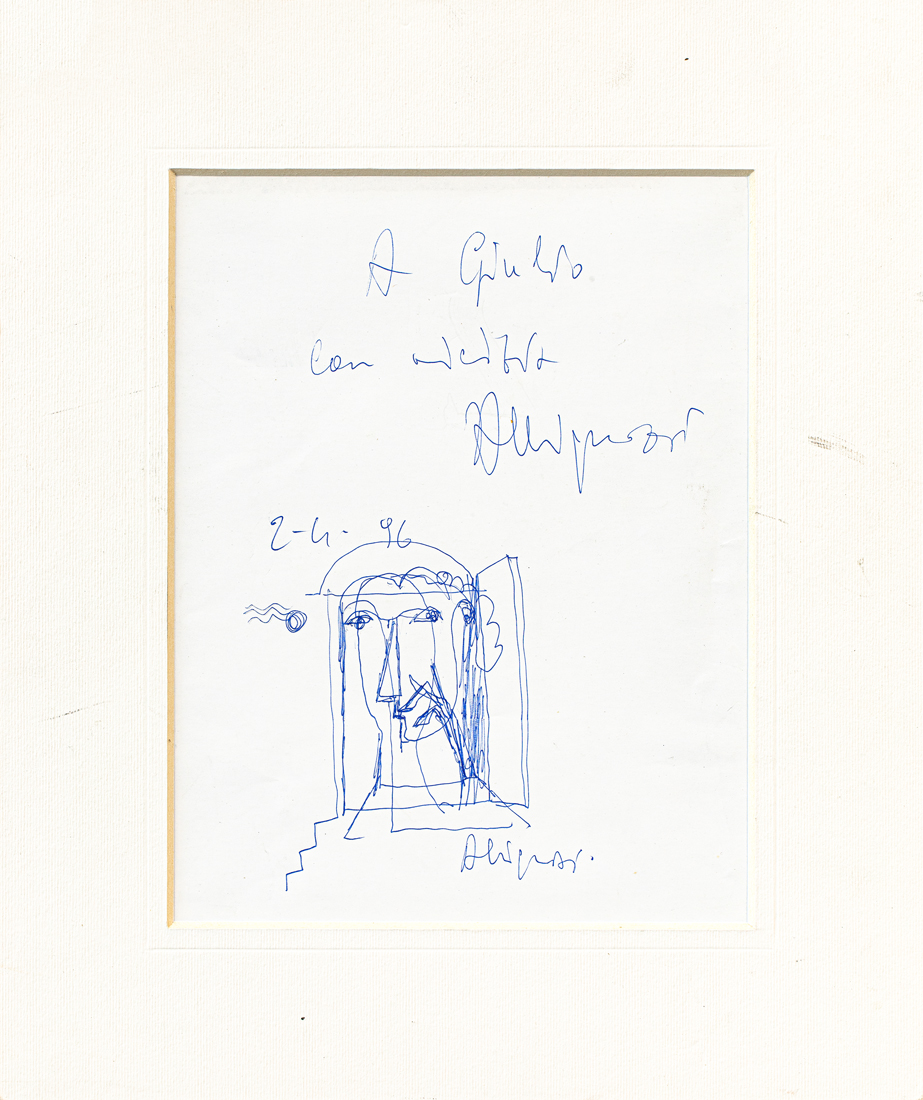 A Giulio
con amicizia
2-4-96